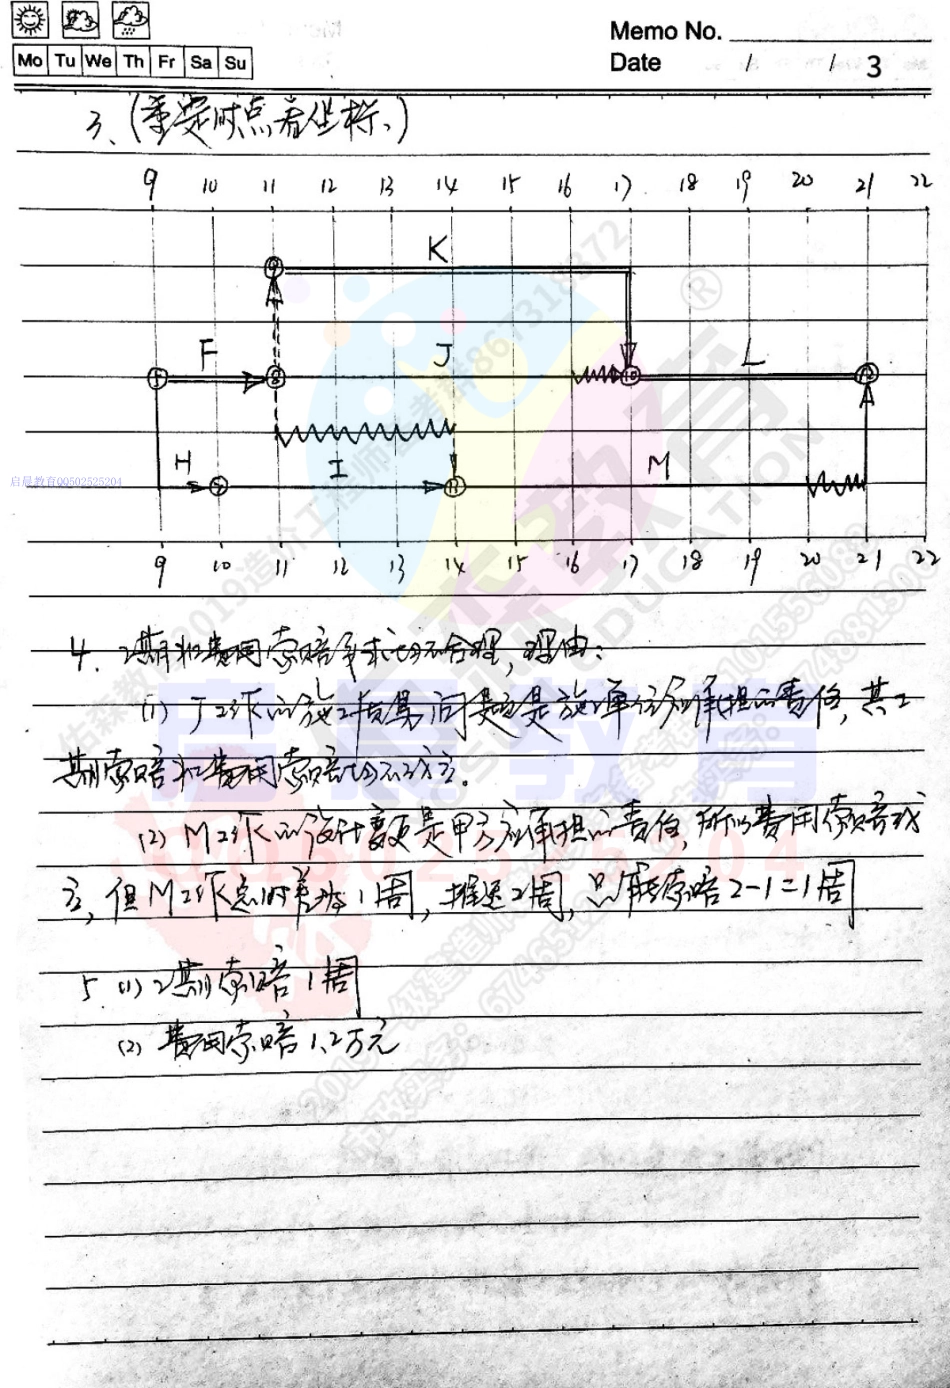 Memo No.
Mo Tu We Th Fr Sa Su
Date / / 3
3、(重要时点看坐标、)
9 10 11 12 13 14 15 16 17 18 19 20 21 22
K
F J L
H I M
启晨教育QQ502525204
9 10 11 12 13 14 15 16 17 18 19 20 21 22
4. 工期和费用索赔争求均不合理，理由：
(1) J工作的施工质量问题是施工单位应承担的责任，其工
期索赔和费用索赔均不成立。
(2) M工作的设计变更是甲方应承担的责任，所以费用索赔成
立，但M工作总时差为1周，推迟2周，只能索赔2-1=1周
5 (1) 工期索赔1周
(2) 费用索赔1.2万元
启晨教育
QQ502525204